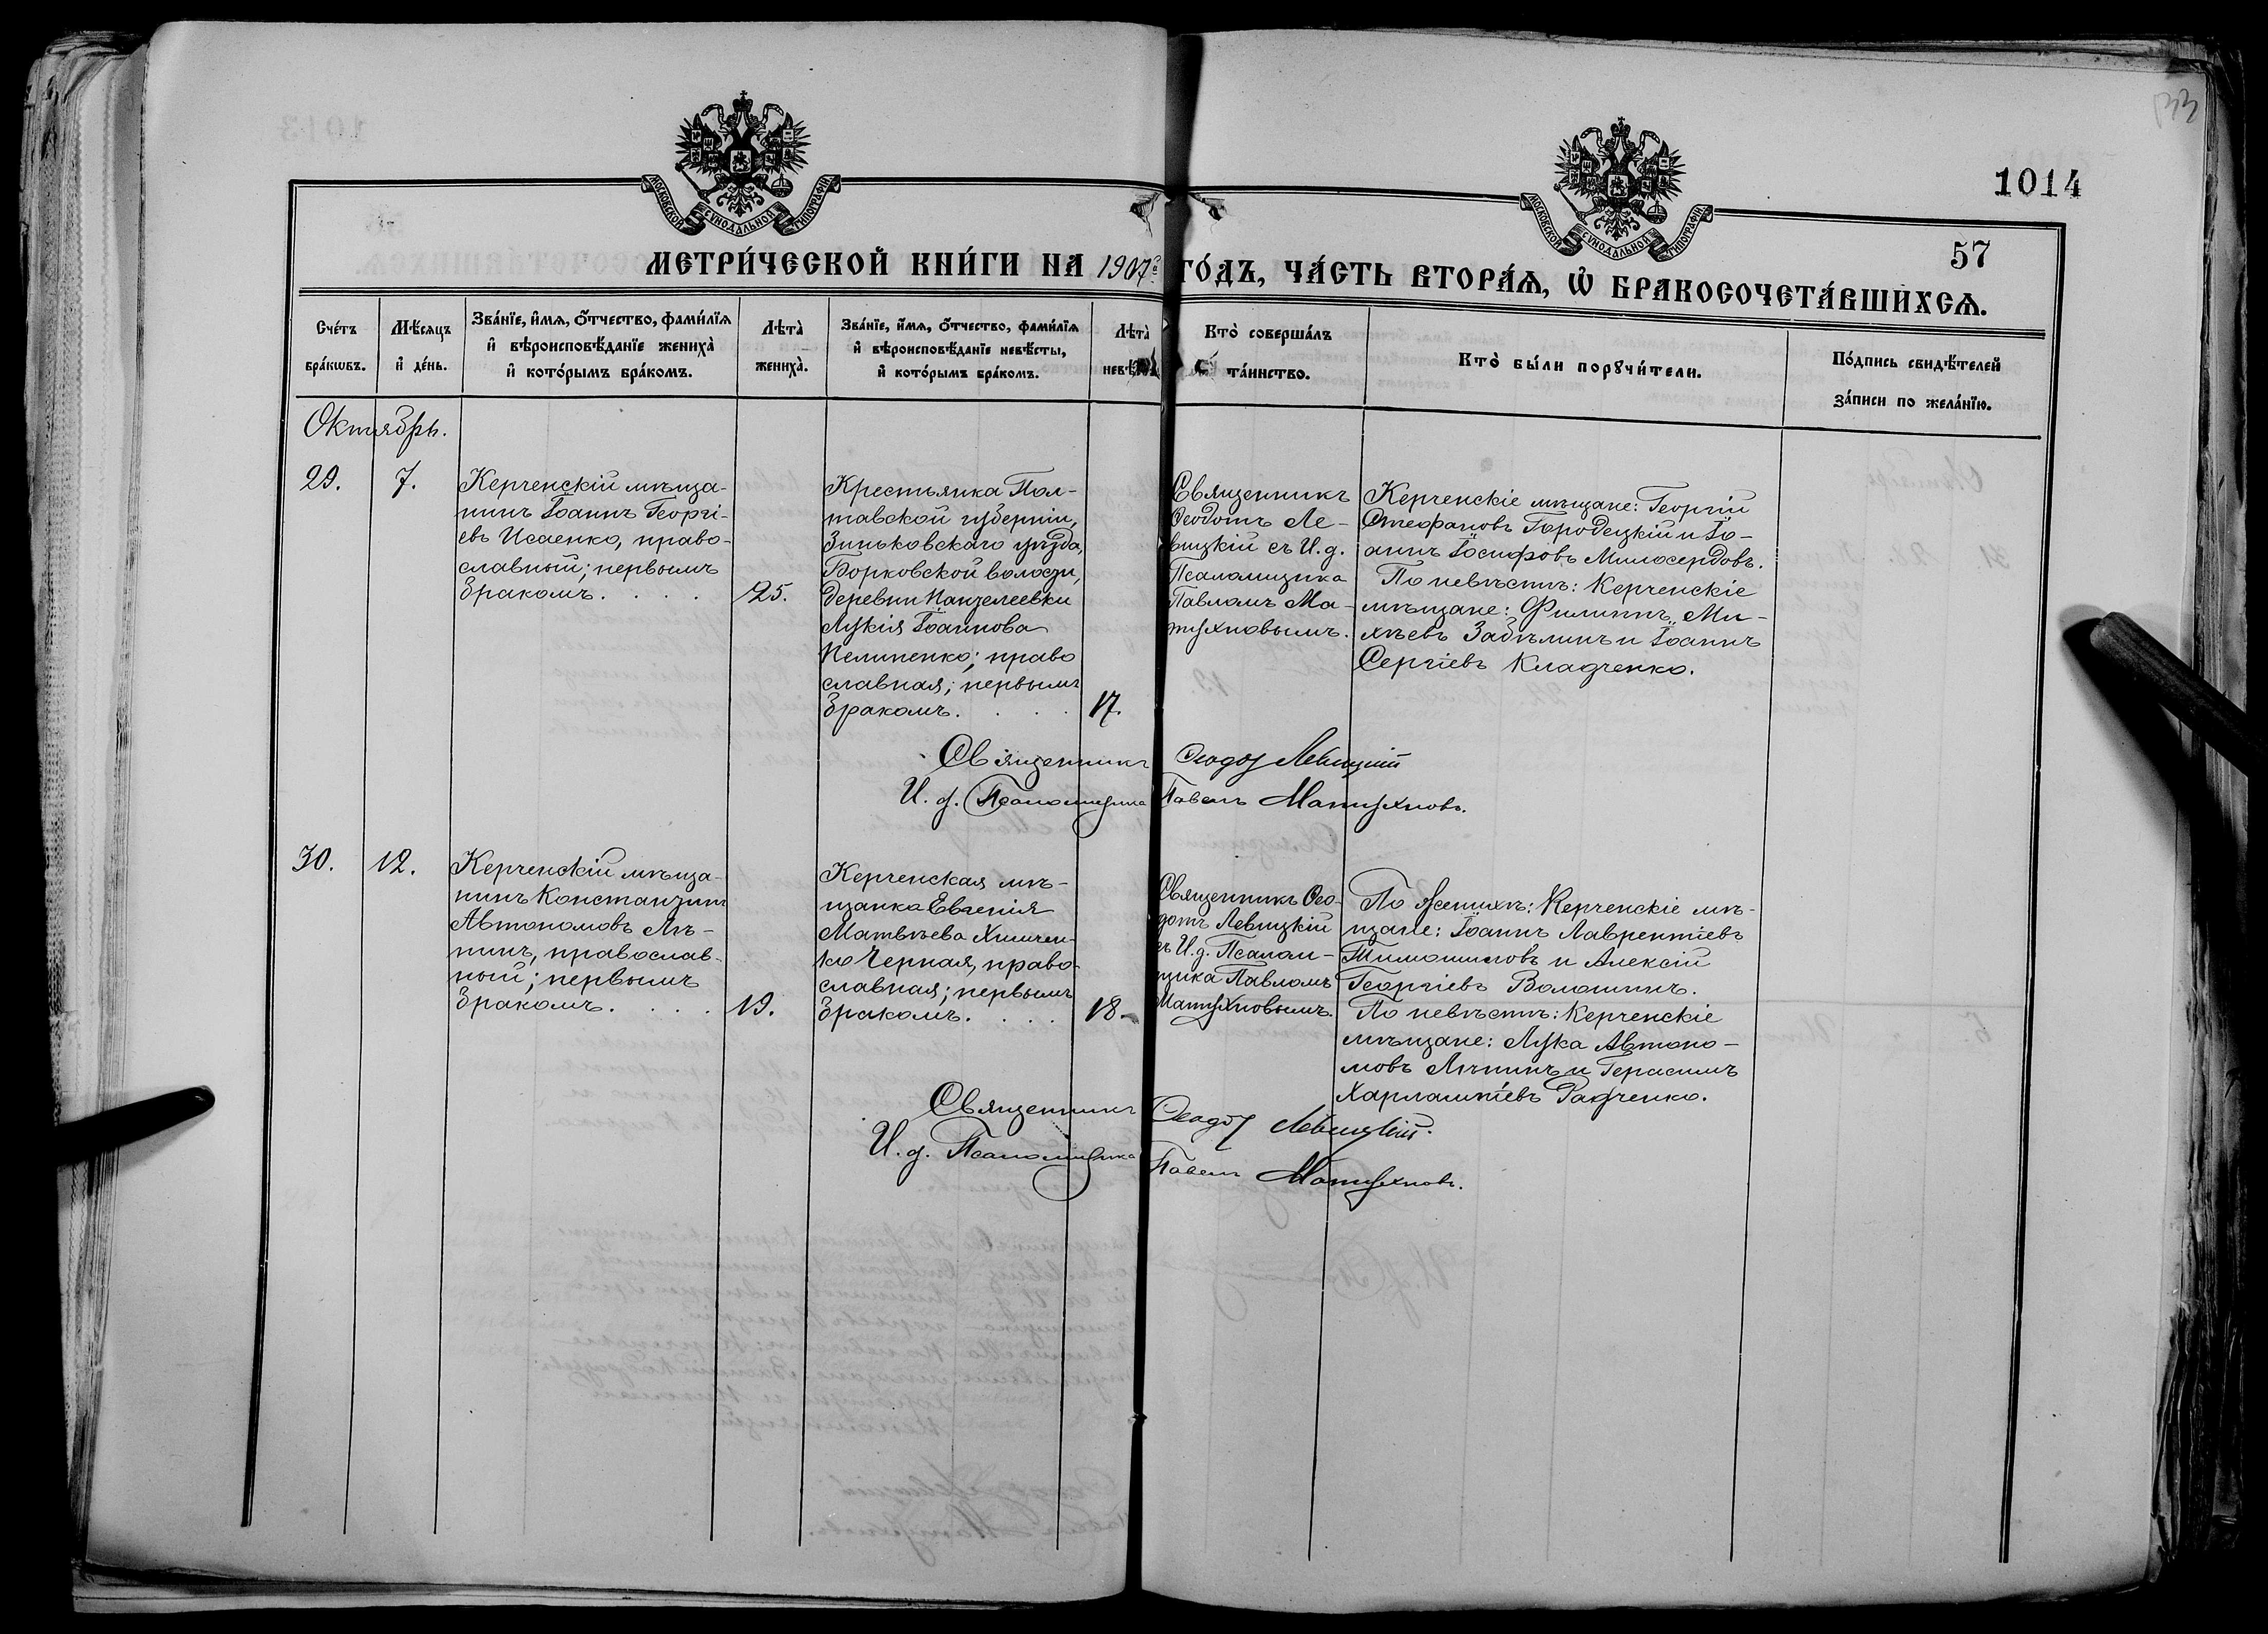 1014
57
МОСКОВСКОЙ СѴНОДАЛЬНОЙ ТИПОГРАФІИ
МОСКОВСКОЙ СѴНОДАЛЬНОЙ ТИПОГРАФІИ
МЕТРИ́ЧЕСКОЙ КНИ́ГИ НА 1907й ГО́ДЪ, ЧА́СТЬ ВТОРА́Ѧ, Ѽ БРАКОСОЧЕТА́ВШИХСѦ.
Сче́тъ
бра́кѡвъ.
Мѣ́сяцъ
и҆ де́нь.
Зва́нїе, и҆́мѧ, ѻ҆́тчество, фами́лїѧ
и҆ вѣроисповѣ́данїе женихà
и҆ кото́рымъ бра́комъ.
Лѣтà
женихà.
Зва́нїе, и҆́мѧ, ѻ҆́тчество, фами́лїѧ
и҆ вѣроисповѣ́данїе невѣ́сты,
и҆ кото́рымъ бра́комъ.
Лѣтà
Кто̀ соверша́лъ
та́инство.
Кто̀ бы́ли порꙋчи́тели.
По́дпись свидѣ́телей
за́писи по жела́нїю.
Октябрь.
29.
7.
Керченскій мѣща-
нинъ Іоаннъ Георгі-
евъ Исаенко, право-
славный; первымъ
бракомъ. . . .
25.
Крестьянка Пол-
тавской губерніи,
Зиньковскаго уѣзда,
Борковской волости,
деревни Панзелеевки
Лукія Іоаннова
Пелипенко; право
славная; первымъ
бракомъ. . . .
17.
Священникъ
Ѳеодотъ Ле-
вицкій съ И. д.
Псаломщика
Павломъ Ма-
тухновымъ.
Керченскіе мѣщане: Георгій
Стефановъ Городецкій и Іо-
аннъ Іосифовъ Милосердовъ.
По невѣстѣ: Керченскіе
мѣщане: Филиппъ Ми-
хѣевъ Забѣлинъ и Іоаннъ
Сергіевъ Кладченко.
Священникъ Ѳеодот Левицкій
И. д. Псаломщика Павелъ Матухновъ.
30.
12.
Керченскій мѣща-
нинъ Константинъ
Автономовъ Лѣ-
нинъ, православ-
ный; первымъ
бракомъ. . . .
19.
Керченская мѣ-
щанка Евгенія
Матвѣева Химчен-
ко Черная, право-
славная; первымъ
бракомъ. . . .
18.
Священникъ Ѳео-
дотъ Левицкій
съ И. д. Псалом-
щика Павломъ
Матухновымъ.
По женихѣ: Керченскіе мѣ-
щане: Іоаннъ Лаврентіевъ
Тимошиловъ и Алексій
Георгіевъ Волошинъ.
По невѣстѣ: Керченскіе
мѣщане: Лука Автоно-
мовъ Лѣнинъ и Герасимъ
Харлампіевъ Радченко.
Священникъ Ѳеодот Левицкій.
И. д. Псаломщика Павелъ Матухновъ.